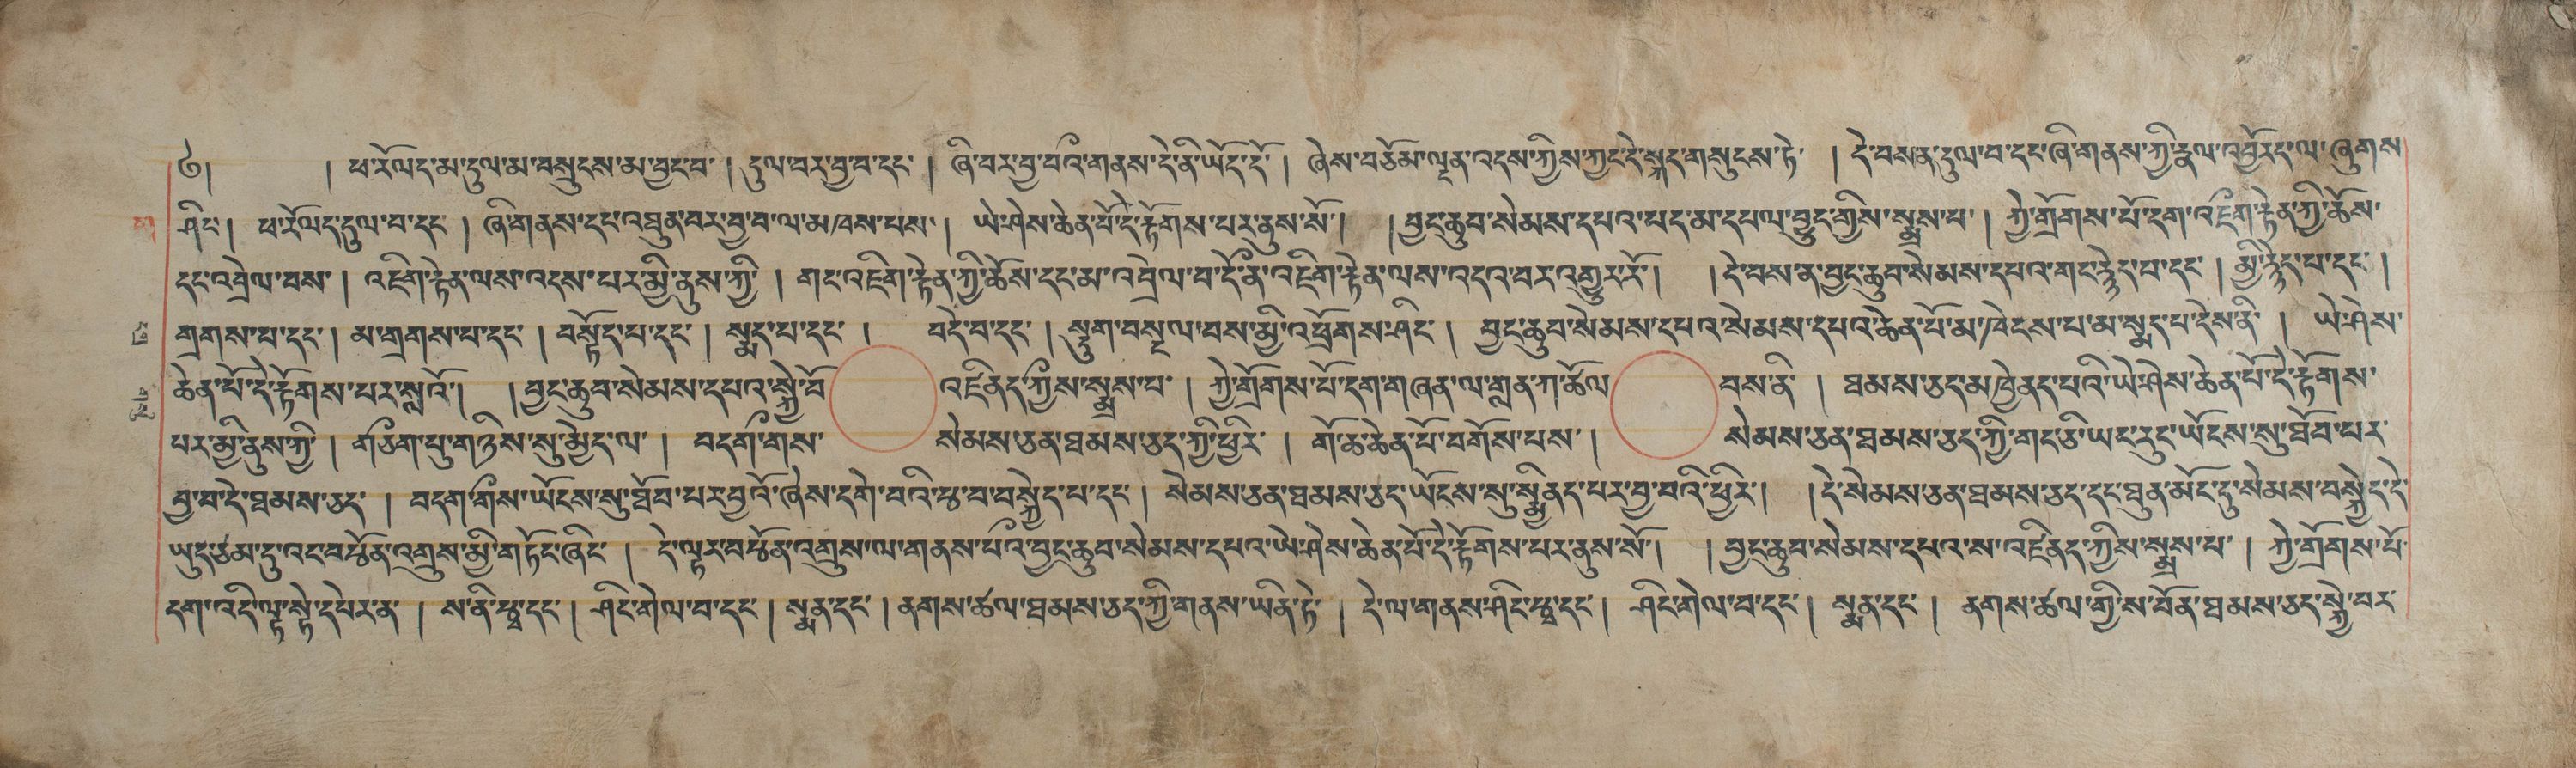 ༄། །ཕ་རོལད་མ་དུལ་མ་བསྲུངས་མ་བྱང་བ་ །དུལ་བར་བྱ་བ་དང་ །ཞི་བར་བྱ་བའི་གནས་དེ་ནི་ཡོད་དོ་ །ཞེས་བཅོམ་ལྡན་འདས་ཀྱིས་ཀྱང་དེ་སྐད་གསུངས་ཏེ་ །དེ་བསན་དུལ་བ་དང་ཞི་གནས་ཀྱི་རྣལ་འབྱོརད་ལ་ཞུགས
ཤིང་། ཕ་རོལད་དུལ་བ་དང་ །ཞི་གནས་དང་འཐུན་བར་བྱ་བ་ལ་མཁས་པས་ །ཡེ་ཤེས་ཆེན་པོ་དེ་རྟོགས་པར་ནུས་སོ་། །བྱང་ཆུབ་སེམས་དཔའ་པད་མ་དཔལ་བྱུང་གྱིས་སྨྲས་པ་ །ཀྱེ་གྲོགས་པོ་དག་འཇིག་རྟེན་ཀྱི་ཆོས་
དང་འབྲེལ་བས་ །འཇིག་རྟེན་ལས་འདས་པར་མྱི་ནུས་ཀྱི་ །གང་འཇིག་རྟེན་ཀྱི་ཆོས་དང་མ་འབྲེལ་བ་དེ་ནི་འཇིག་རྟེན་ལས་འདའ་བར་འགྱུར་རོ་། །དེ་བས་ན་བྱང་ཆུབ་སེམས་དཔའ་གང་རྙེད་པ་དང་ །མྱི་རྙེད་པ་དང་ །
གྲགས་པ་དང་ །མ་གྲགས་པ་དང་ །བསྟོད་པ་དང་ །སྨད་པ་དང་ །བདེ་བ་དང་ །སྡུག་བསྔལ་བས་མྱི་འཕྲོགས་ཤིང་ །བྱང་ཆུབ་སེམས་དཔའ་སེམས་དཔའ་ཆེན་པོ་མ་ཁེངས་པ་མ་སྨད་པ་དེས་ནི་ །ཡེ་ཤེས་
ཆེན་པོ་དེ་རྟོགས་པར་སླའོ་། །བྱང་ཆུབ་སེམས་དཔའ་སྐྱེ་བོ་འཛིནད་ཀྱིས་སྨྲས་པ་ །ཀྱེ་གྲོགས་པོ་དག་གཞན་ལ་གླན་ཀ་ཚོལ་བས་ནི་ །ཐམས་ཅད་མཁྱེནད་པའི་ཡེ་ཤེས་ཆེན་པོ་དེ་རྟོགས་
པར་མྱི་ནུས་ཀྱི་ །གཅིག་པུ་གཉིས་སུ་མྱེད་ལ་ །བདགི་གས་སེམས་ཅན་ཐམས་ཅད་ཀྱི་ཕྱིར་ །གོ་ཆ་ཆེན་པོ་བགོས་པས་ །སེམས་ཅན་ཐམས་ཅད་ཀྱི་གང་ཅི་ཡང་རུང་ཡོངས་སུ་ཐོབ་པར་
བྱ་བ་དེ་ཐམས་ཅད་ །བདག་གིས་ཡོངས་སུ་ཐོབ་པར་བྱའོ་ཞེས་དགེ་བའི་རྩ་བ་བསྐྱེད་པ་དང་ །སེམས་ཅན་ཐམས་ཅད་ཡོངས་སུ་སྨྱིནད་པར་བྱ་བའི་ཕྱིར་། །དེ་སེམས་ཅན་ཐམས་ཅད་དང་ཐུན་མོང་དུ་སེམས་བསྐྱེད་དེ་
ཡུད་ཙམ་དུ་འང་བརྩོན་འགྲུས་མྱི་གཏོང་ཞིང་ །དེ་ལྟར་བརྩོན་འགྲུས་ལ་གནས་པའི་བྱང་ཆུབ་སེམས་དཔའ་ཡེ་ཤེས་ཆེན་པོ་དེ་རྟོགས་པར་ནུས་སོ་། །བྱང་ཆུབ་སེམས་དཔའ་ས་འཛིནད་ཀྱིས་སྨྲས་པ་ །ཀྱེ་གྲོགས་པོ་
དག་འདི་ལྟ་སྟེ་དཔེར་ན་ །ས་ནི་རྩྭ་དང་ །ཤིང་གེལ་བ་དང་ །སྨན་དང་ །ནགས་ཚལ་ཐམས་ཅད་ཀྱི་གནས་ཡིན་ཏེ་ །དེ་ལ་གནས་ཤིང་རྩྭ་དང་ །ཤིང་གེལ་བ་དང་ །སྨན་དང་ །ནགས་ཚལ་གྱི་ས་བོན་ཐམས་ཅད་སྐྱེ་བར་